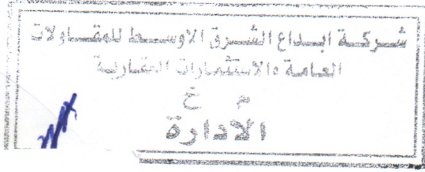 شركة ابداع الشرق الاوسط للمقاولات
العامة والاستثمارات العقارية
م خ
الادارة